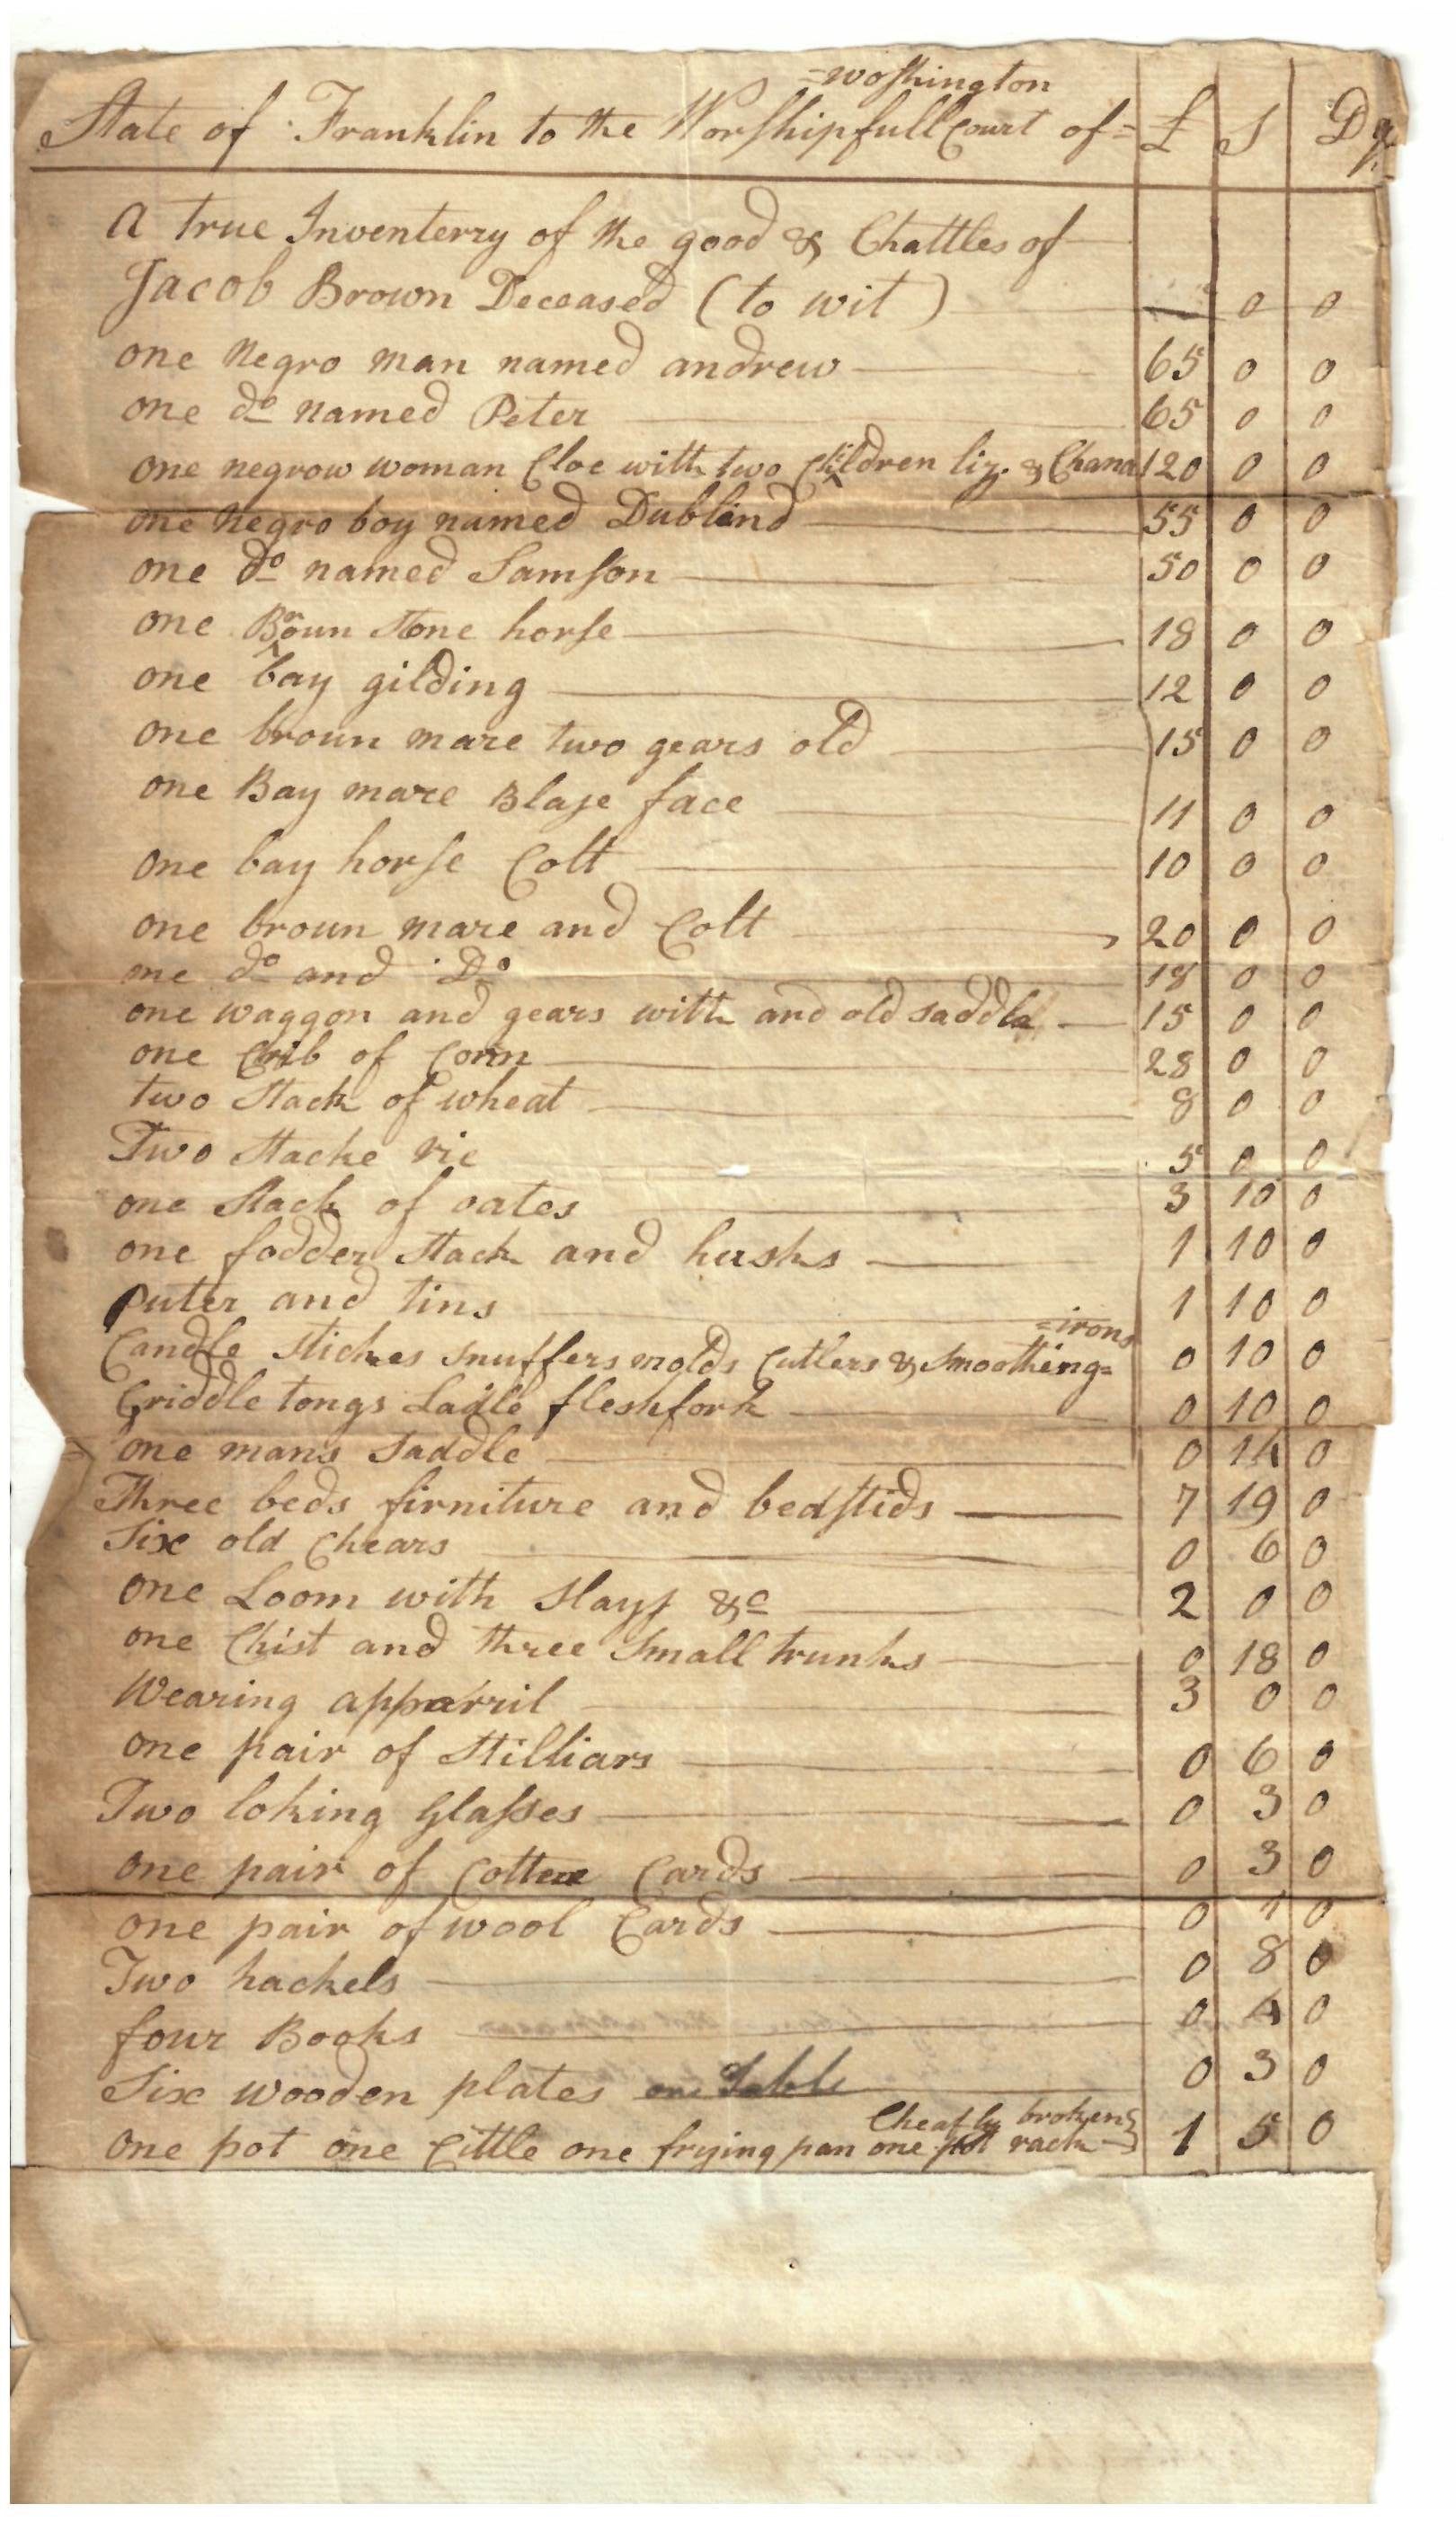 =woshington
State of Franklin to the Worshipfull Court of= £ S D
A true Inventerry of the good & Chattles of
Jacob Brown Deceased (to wit) — 0 0
one negro man named andrew 65 0 0
one do named Peter 65 0 0
one negrow woman Cloe with two Children liz. & Chana 120 0 0
one negro boy named Dublind 55 0 0
one do named Samson 50 0 0
one Broun Stone horse 18 0 0
one bay gilding 12 0 0
one broun mare two years old 15 0 0
one Bay mare Blase face 11 0 0
one bay horse Colt 10 0 0
one broun mare and Colt 20 0 0
one do and Do 18 0 0
one waggon and gears with and old saddla 15 0 0
one Crib of Corn 28 0 0
two Stack of wheat 8 0 0
Two Stacke rie 5 0 0
one Stack of oates 3 10 0
one fodder Stack and husks 1 10 0
puter and tins 1 10 0
=irons
Candle Stickes snuffers molds Cutlers & Smoothing= 0 10 0
Griddle tongs Ladle fleshfork 0 10 0
one mans Saddle 0 14 0
Three beds firniture and bedstids 7 19 0
Six old Chears 0 6 0
one Loom with Slays &c 2 0 0
one Chist and three Small trunks 0 18 0
Wearing apparril 3 0 0
one pair of Stilliars 0 6 0
Two loking Glasses 0 3 0
one pair of Cards 0 3 0
one pair of wool Cards 0 1 0
Two hackels 0 8 0
four Books 0 4 0
Six wooden plates one Table 0 3 0
Cheafly broken
One pot one Cittle one frying pan one pot rack 1 5 0